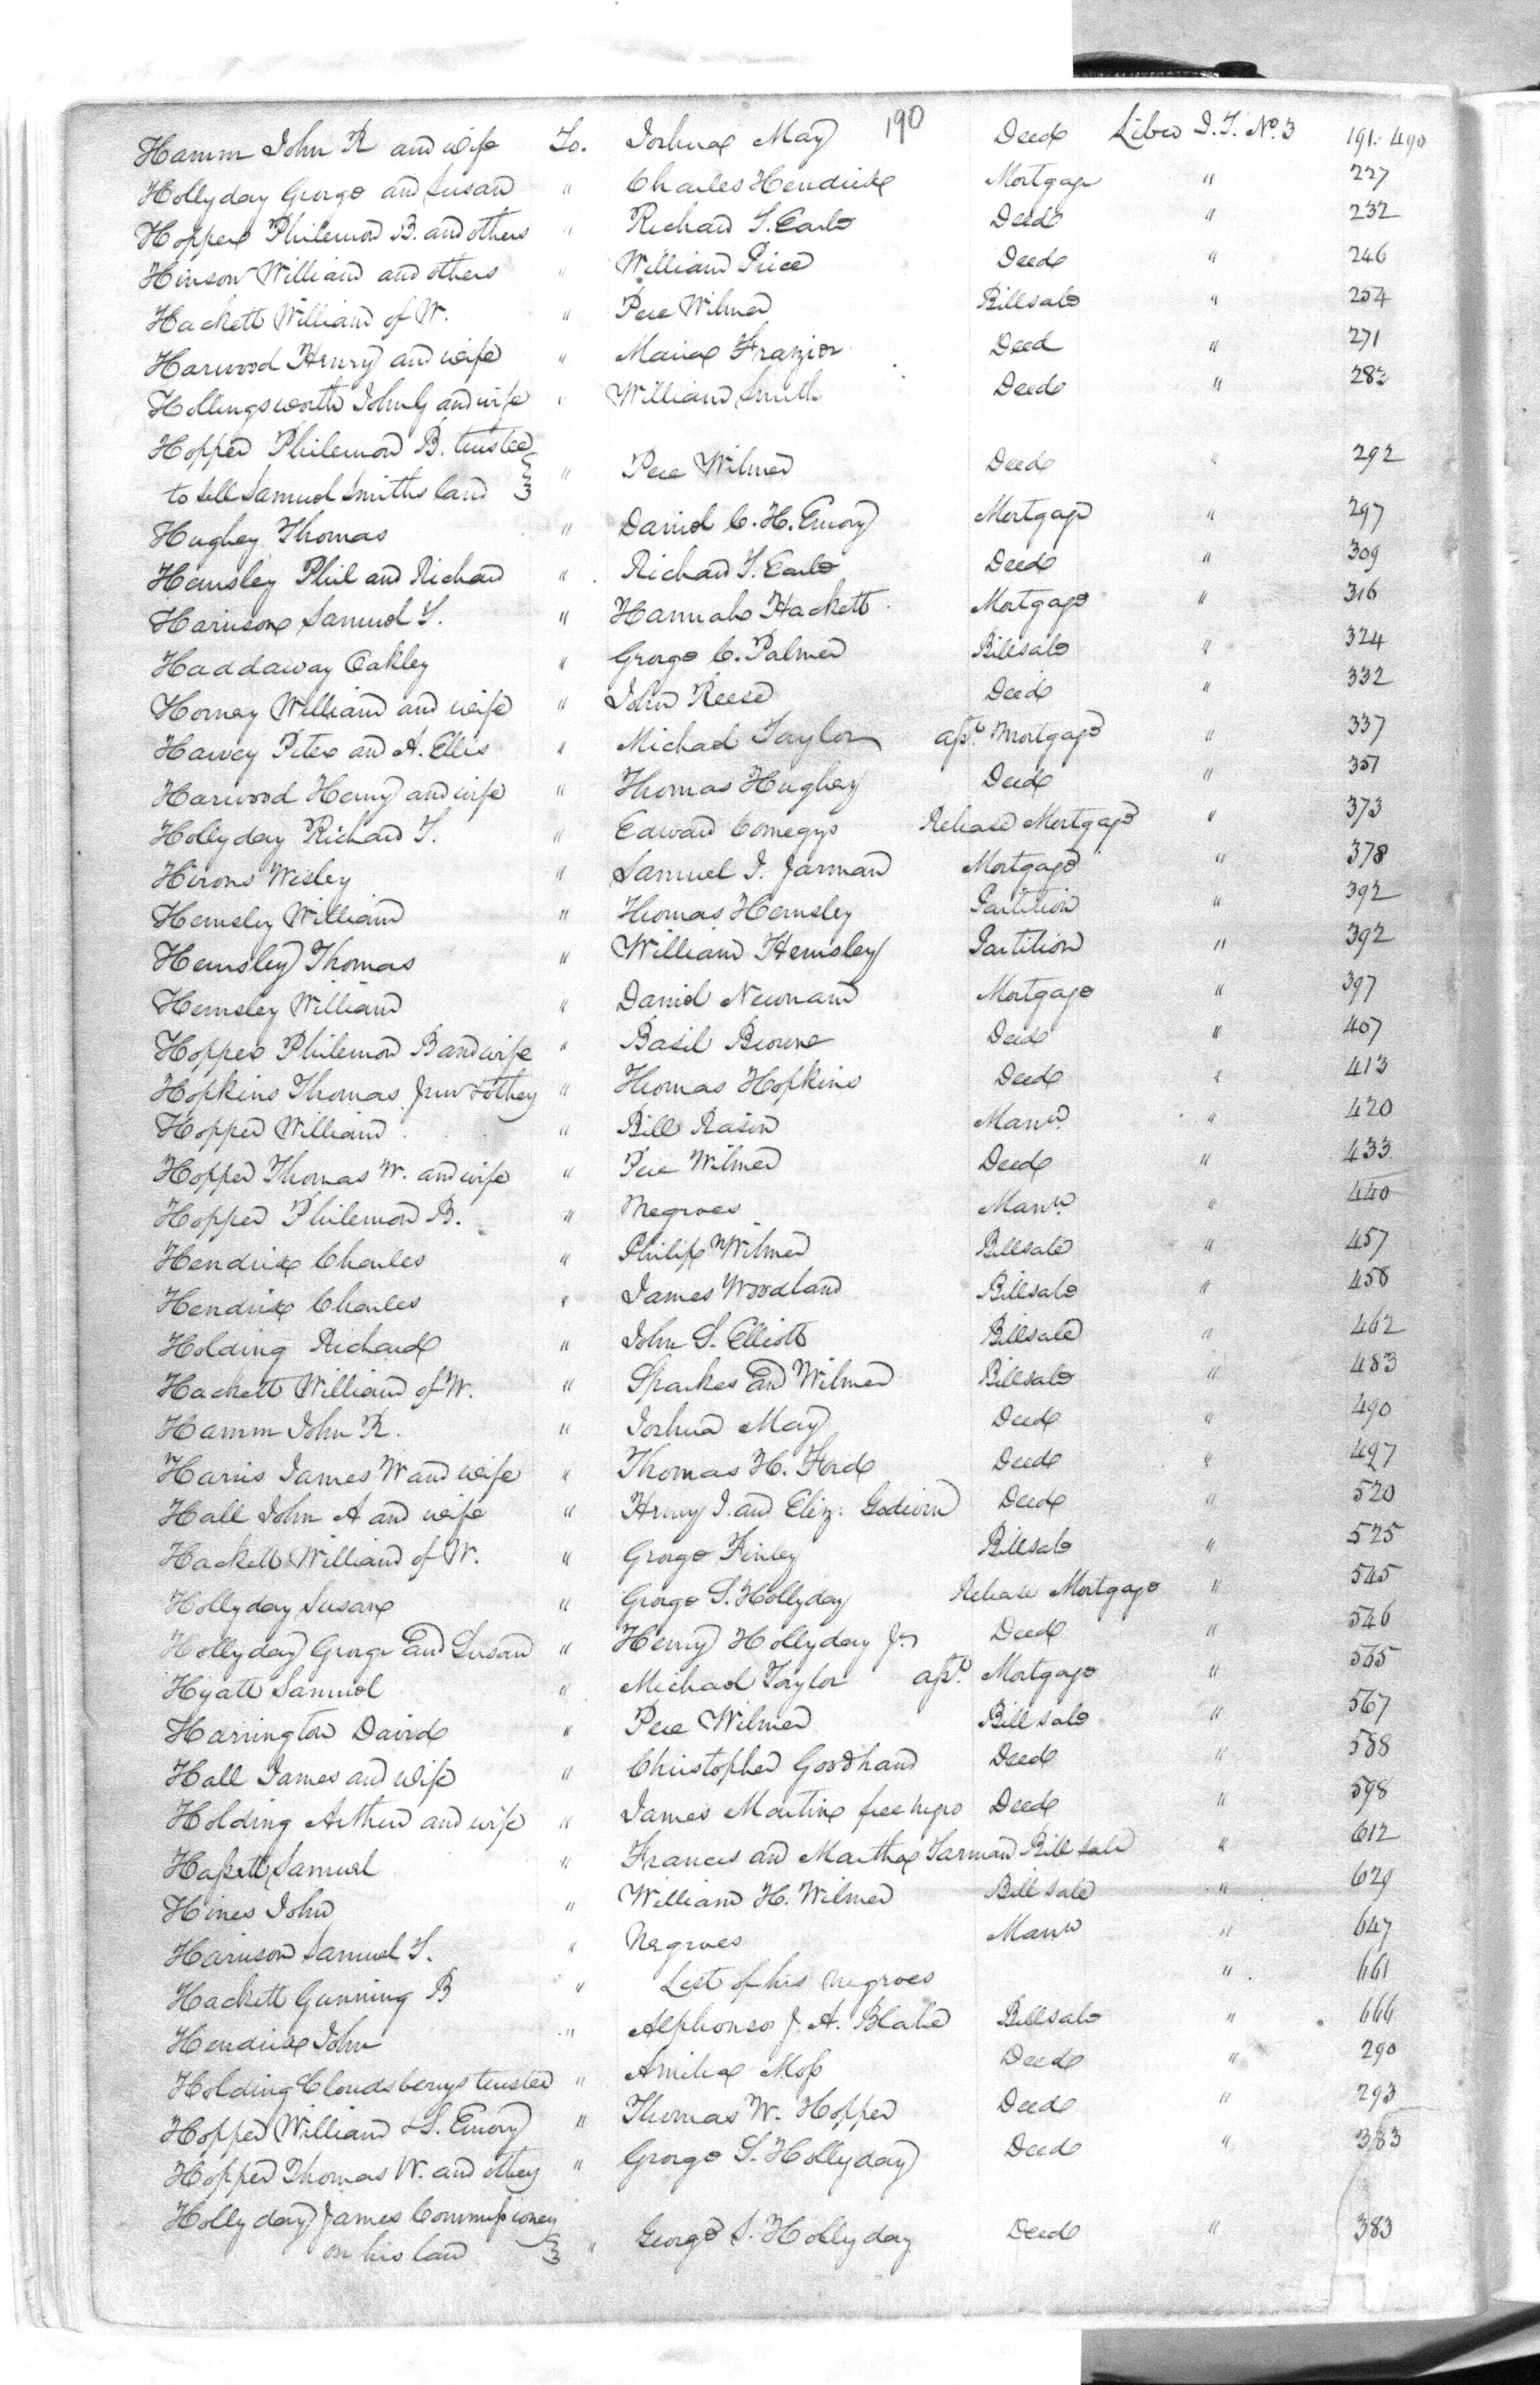 190
Hamm John R and wife To. Joshua May Deed Liber I.T. No. 3 191. 490
Hollyday George and Susan " Charles Hendrix Mortgage " 227
Hopper Philemon B. and others " Richard T. Earle Deed " 232
Hinson William and others " William Price Deed " 246
Hackett William of W. " Pere Wilmer Billsale " 254
Harwood Henry and wife " Maria Frazier Deed " 271
Hollingsworth John G and wife " William Smith Deed " 283
Hopper Philemon B. trustee
to sell Samuel Smiths land } " Pere Wilmer Deed " 292
Hughey Thomas " Daniel C. H. Emory Mortgage " 297
Hemsley Phil and Richard " Richard T. Earle Deed " 309
Harrison Samuel T. " Hannah Hackett Mortgage " 316
Haddaway Oakley " George C. Palmer Billsale " 324
Horney William and wife " John Reese Deed " 332
Harvey Peter and A. Ellis " Michael Taylor Mortgage " 337
Harwood Henry and wife " Thomas Hughey Deed " 351
Hollyday Richard T. " Edward Comegys Release Mortgage " 373
Hirons Wesley " Samuel T. Jarman Mortgage " 378
Hemsley William " Thomas Hemsley Partition " 392
Hemsley Thomas " William Hemsley Partition " 392
Hemsley William " Daniel Newnam Mortgage " 397
Hopper Philemon B and wife " Basil Browne Deed " 407
Hopkins Thomas Junr & others " Thomas Hopkins Deed " 413
Hopper William " Bill Rasin Mann. " 420
Hopper Thomas W. and wife " Pere Wilmer Deed " 433
Hopper Philemon B. " Negroes Mann. " 440
Hendrix Charles " Philip Wilmer Billsale " 457
Hendrix Charles " James Woodland Billsale " 458
Holding Richard " John S. Elliott Billsale " 462
Hackett William of W. " Sparkes and Wilmer Billsale " 483
Hamm John R. " Joshua May Deed " 490
Harris James W and wife " Thomas H. Ford Deed " 497
Hall John A and wife " Henry I. and Eliz: Godwin Deed " 520
Hackett William of W. " George Finley Billsale " 525
Hollyday Susan " George S. Hollyday Release Mortgage " 545
Hollyday George and Susan " Henry Hollyday Jr Deed " 546
Hyatt Samuel " Michael Taylor Mortgage " 565
Harrington David " Pere Wilmer Bill sale " 567
Hall James and wife " Christopher Goodhand Deed " 588
Holding Arthur and wife " James Martin free negro Deed " 598
Samuel " Frances and Martha Jarman Bill sale " 612
Hines John " William H. Wilmer Bill sale " 629
Harrison Samuel T. " Negroes Mann " 647
Hackett Gunning B " List of his negroes " 661
Hendrix John " Alphonso J. A. Blake Billsale " 666
Holding Cloudsberrys trustee " Amelia Moss Deed " 290
Hopper William & S. Emory " Thomas W. Hopper Deed " 293
Hopper Thomas W. and others " George S. Hollyday Deed " 383
Hollyday James Commissioners
on his land } " George S. Hollyday Deed " 383